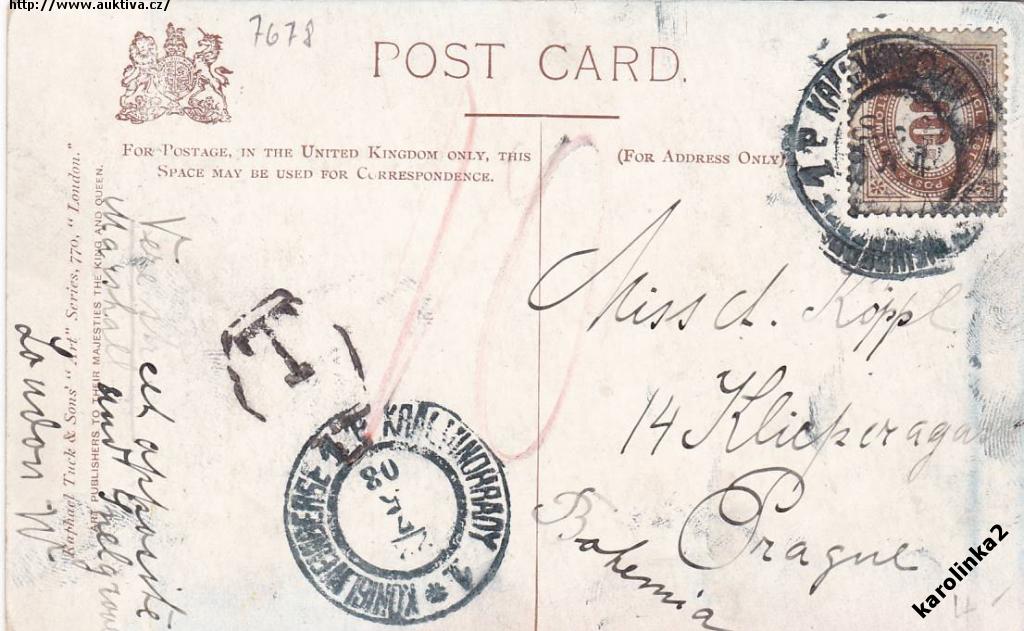 http://www.auktiva.cz/
7678
POST CARD.
FOR POSTAGE, IN THE UNITED KINGDOM ONLY, THIS
SPACE MAY BE USED FOR CORRESPONDENCE.
(FOR ADDRESS ONLY)
Raphael Tuck & Sons' "Art" Series, 770, "London."
ART PUBLISHERS TO THEIR MAJESTIES THE KING AND QUEEN.
at opposite
Marshall and Snelgrove
London W
T
10
Miss A. Köppl
14 Klieperagasse
Prague
Bohemia
KÖNIGL. WEINBERGE 1 KRÁL. VINOHRADY 1
08
karolinka2